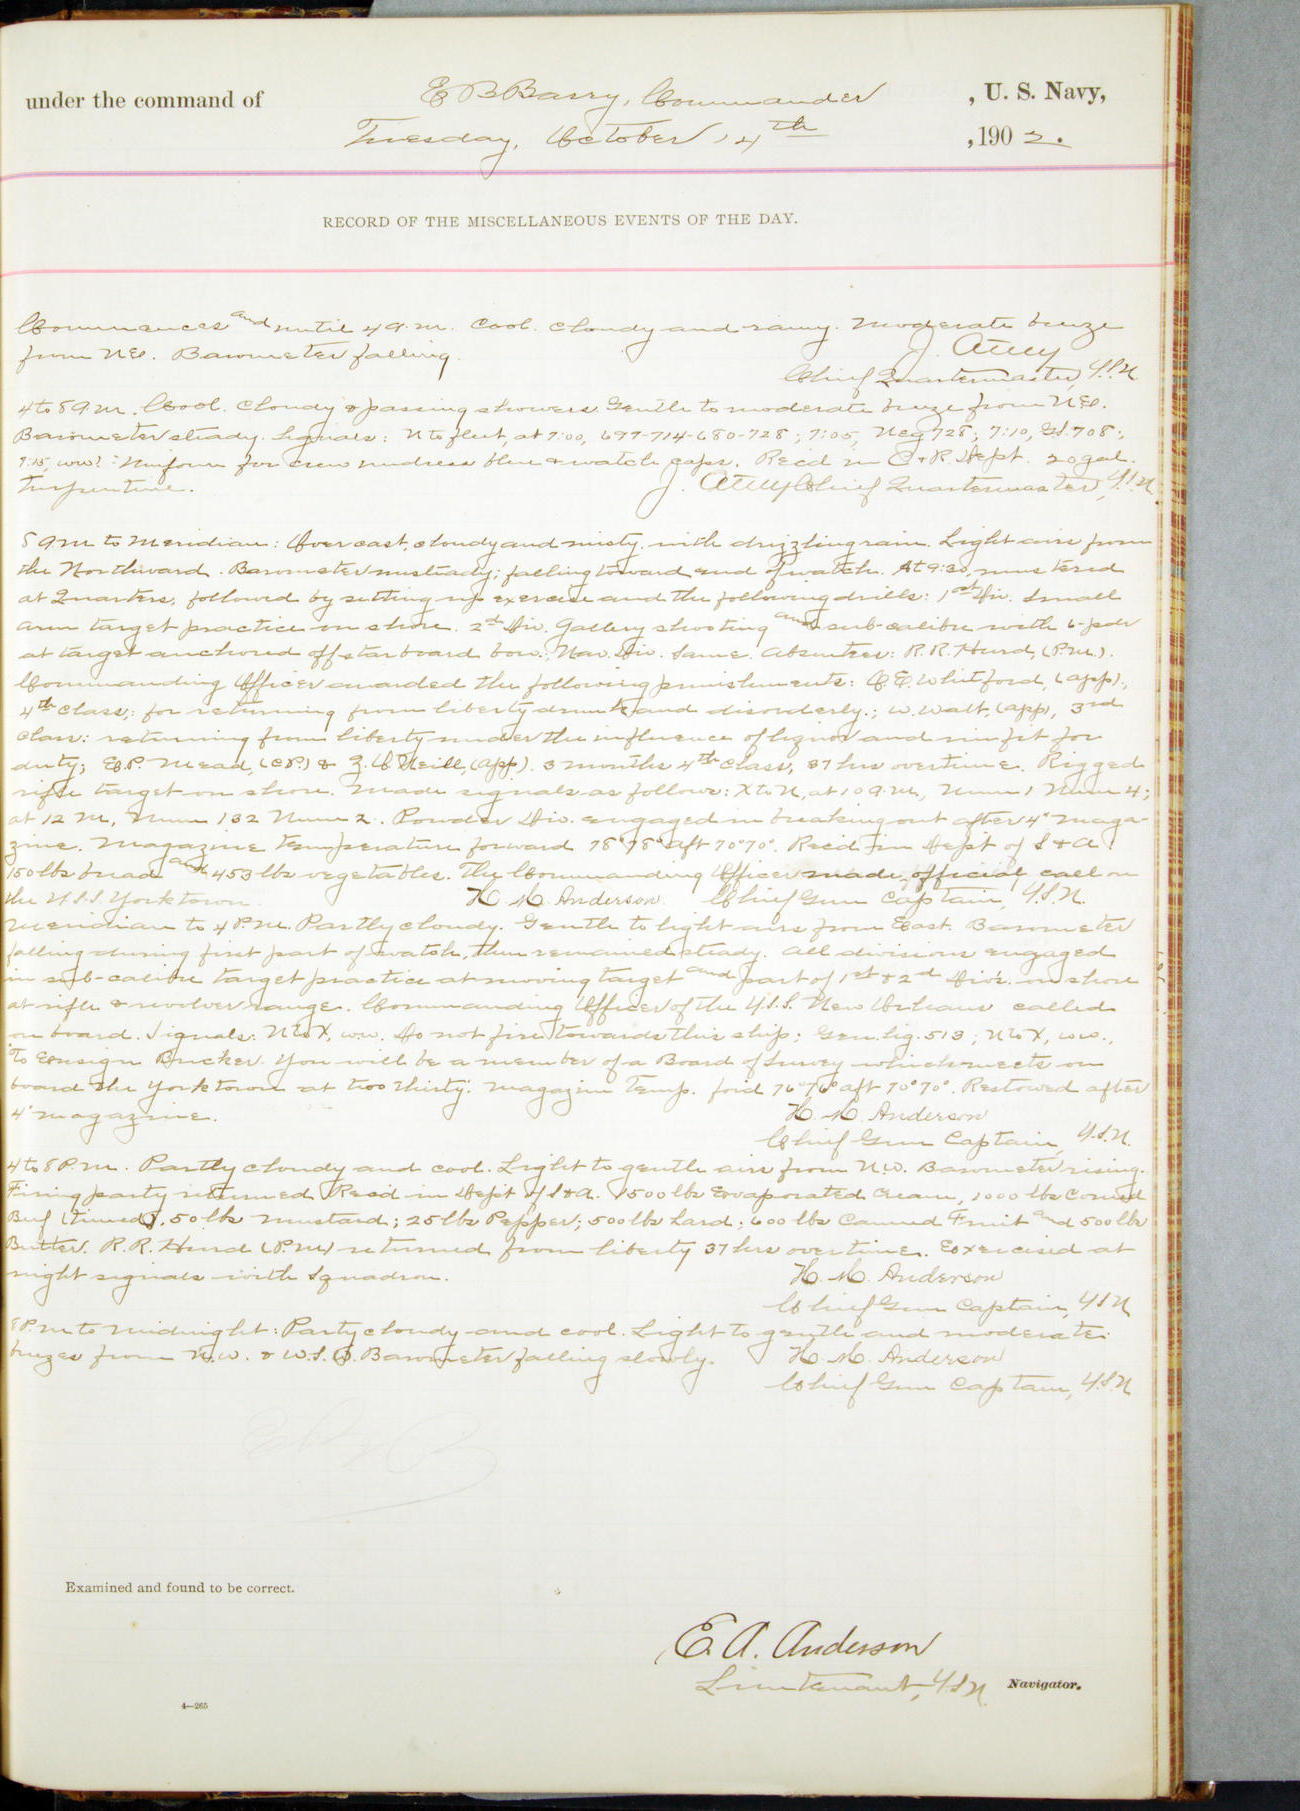 under the command of E B Barry, Commander , U. S. Navy,
Tuesday, October 14th ,1902.
RECORD OF THE MISCELLANEOUS EVENTS OF THE DAY.
Commences and until 4 a.m. Cool. Cloudy and rainy. Moderate breeze
from NE. Barometer falling.
J.
Chief Quartermaster, U.S.N
4 to 8 a m. Cool. Cloudy & passing showers. Gentle to moderate breeze from NE.
Barometer steady. Signals: N to fleet, at 7:00, 697-714-680-728; 7:05, Neg 728; 7:10, GS.708;
7:15, ww: Uniform for crew undress blue & watch caps. Rec'd in C & R. Dept. 20 gal.
Turpentine.
J. Chief Quartermaster, U.S.N.
8 a m to Meridian: Overcast, cloudy and misty, with drizzling rain. Light airs from
the Northward. Barometer unsteady; falling toward end of watch. At 9:30, mustered
at Quarters, followed by setting up exercise and the following drills: 1st Div. Small
arm target practice on shore. 2d Div. Gallery shooting and sub-calibre with 6-pdr
at target anchored off starboard bow; Nav. Div. Same. Absentees: R. R. Hurd, (P.M.).
Commanding Officer awarded the following punishments: C. E. Whitford, (app).,
4th class,: for returning from liberty drunk and disorderly.; W. Walt, (app), 3rd
class: returning from liberty under the influence of liquor and unfit for
duty; E. P. Mead, (C.P.) & Z. O'Neill, (app). 3 months 4th class, 37 hrs overtime. Rigged
rifle target on shore. Made signals as follows: X to N, at 10 a.m., Num 1 Num 4;
at 12 M, Num 132 Num 2. Powder Div. engaged in breaking out after 4" maga-
zine. Magazine temperature forward 78° 78° aft 70° 70°. Rec'd in Dept of S & A
150 lbs bread and 453 lbs vegetables. The Commanding Officer made official call on
the U.S.S. Yorktown. H. M. Anderson Chief Gun Captain, U.S.N.
Meridian to 4 P.M. Partly cloudy. Gentle to light airs from East. Barometer
falling during first part of watch, then remained steady. All divisions engaged
in sub-calibre target practice at moving target and part of 1st & 2d Div's. on shore
at rifle & revolver range. Commanding Officer of the U.S.S. New Orleans called
on board. Signals: N to X, ww. Do not fire towards this ship; Gen. Sig. 513; N to X, ww.,
To Ensign Bricker. You will be a member of a Board of Survey which meets on
board the Yorktown at two thirty. Magazine temp. for'd 76° 76° aft 70° 70°. Restowed after
4" magazine. H. M. Anderson
Chief Gun Captain, U.S.N.
4 to 8 P.M. Partly cloudy and cool. Light to gentle airs from NW. Barometer rising.
Firing party returned. Rec'd in Dept of S & A. 1500 lbs Evaporated Cream, 1000 lbs Corned
Beef (tinned), 50 lbs Mustard; 25 lbs Pepper; 500 lbs Lard; 600 lbs Canned Fruit and 500 lbs
Butter. R. R. Hurd (P.M.) returned from liberty 37 hrs overtime. Exercised at
night signals with Squadron. H. M. Anderson
Chief Gun Captain, U.S.N
8 P.M to Midnight: Partly cloudy and cool. Light to gentle and moderate
breezes from N.W. & W.S.W. Barometer falling slowly. H. M. Anderson
Chief Gun Captain, U.S.N
Examined and found to be correct.
E. A. Anderson
Lieutenant, U.S.N. Navigator.
4—265